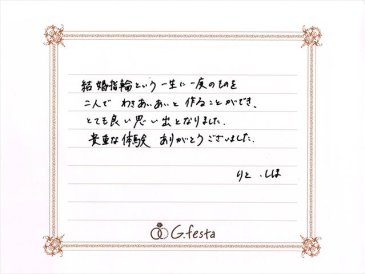 結婚指輪という一生に一度のものを
二人で わきあいあいと 作ることができ、
とても良い思い出となりました。
貴重な体験 ありがとうございました。
りと・しほ
G.festa